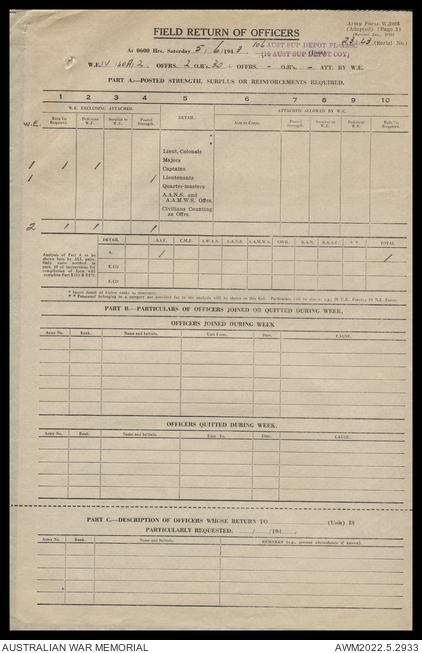 Army Form W.3008
(Adapted) (Page 1)
FIELD RETURN OF OFFICERS
23/43 (Serial No.)
At 0600 Hrs. Saturday 5/6/1943
106 AUST SUP DEPOT PL AASC
(16 AUST SUP DEPOT COY)
OFFRS. 2 O.R's 30 + OFFRS. - O.R's - ATT. BY W.E.
PART A.—POSTED STRENGTH, SURPLUS OR REINFORCEMENTS REQUIRED.
1 2 3 4 5 6 7 8 9 10
W.E. EXCLUDING ATTACHED. ATTACHED ALLOWED BY W.E.
W.E. Rein'ts Required. Deficient W.E. Surplus to W.E. Posted Strength. DETAIL. Arm or Corps. Posted Strength. Surplus to W.E. Deficient W.E. Rein'ts Required.
*
*
Lieut.-Colonels
Majors
1 1 1 Captains
1 1 Lieutenants
Quarter-masters
A.A.N.S. and
A.A.M.W.S. Offrs.
Civilians Counting
as Offrs.
2 1 1 1
DETAIL. A.I.F. C.M.F. A.W.A.S. A.A.N.S. A.A.M.W.S. CIVIL. R.A.N. R.A.A.F. * * TOTAL
Analysis of Part A to be
shown here by ALL units.
Only units notified in
para. 10 of instructions for
compilation of form will
complete Part E(D) & E(T).
A. 1 1
E.(D)
E.(T)
* Insert detail of higher ranks as necessary.
* * Personnel belonging to a category not provided for in the analysis will be shown in this Col.
PART B.—PARTICULARS OF OFFICERS JOINED OR QUITTED DURING WEEK.
OFFICERS JOINED DURING WEEK
Army No. Rank. Name and Initials. Unit From. Date. CAUSE.
OFFICERS QUITTED DURING WEEK.
Army No. Rank. Name and Initials. Unit To. Date. CAUSE.
PART C.—DESCRIPTION OF OFFICERS WHOSE RETURN TO (Unit) IS
PARTICULARLY REQUESTED. / /194
Army No. Rank. Name and Initials. REMARKS (e.g., present whereabouts if known).
AUSTRALIAN WAR MEMORIAL AWM2022.5.2933